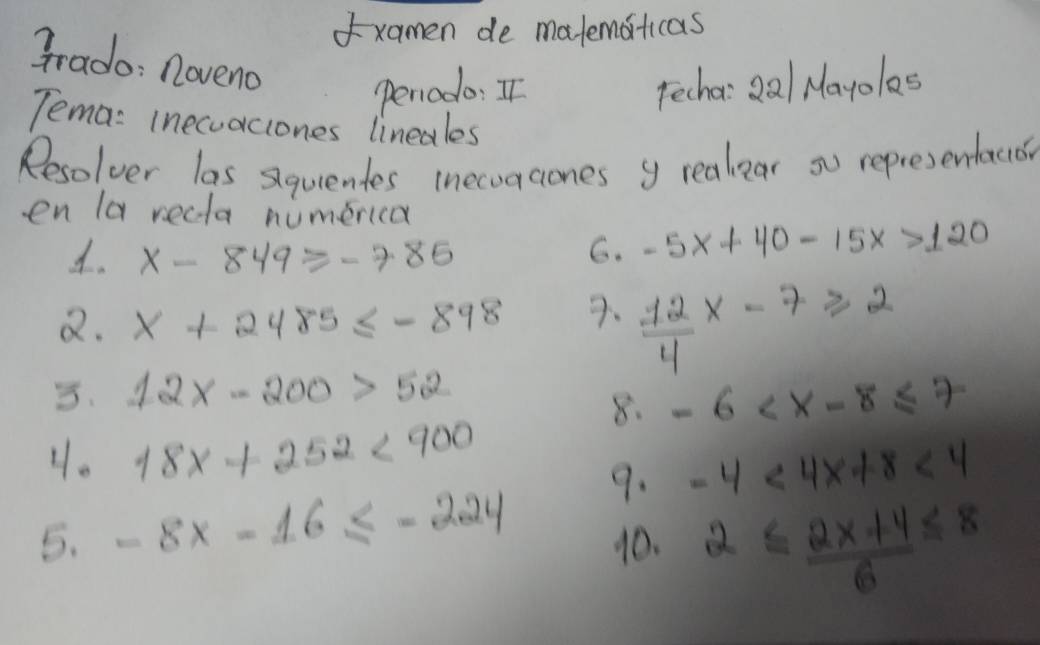 Examen de matemáticas
Grado: Noveno Periodo: II Fecha: 22/Mayo/25
Tema: inecuaciones lineales
Resolver las siguientes inecuaciones y realizar su representación
en la recta numérica
1. x - 849 ≥ -785
2. x + 2485 ≤ -898
3. 12x - 200 > 52
4. 18x + 252 < 900
5. -8x - 16 ≤ -224
6. -5x + 40 - 15x > 120
7. 12/4 x - 7 ≥ 2
8. -6 < x - 8 ≤ 7
9. -4 < 4x + 8 < 4
10. 2 ≤ (2x + 4)/6 ≤ 8